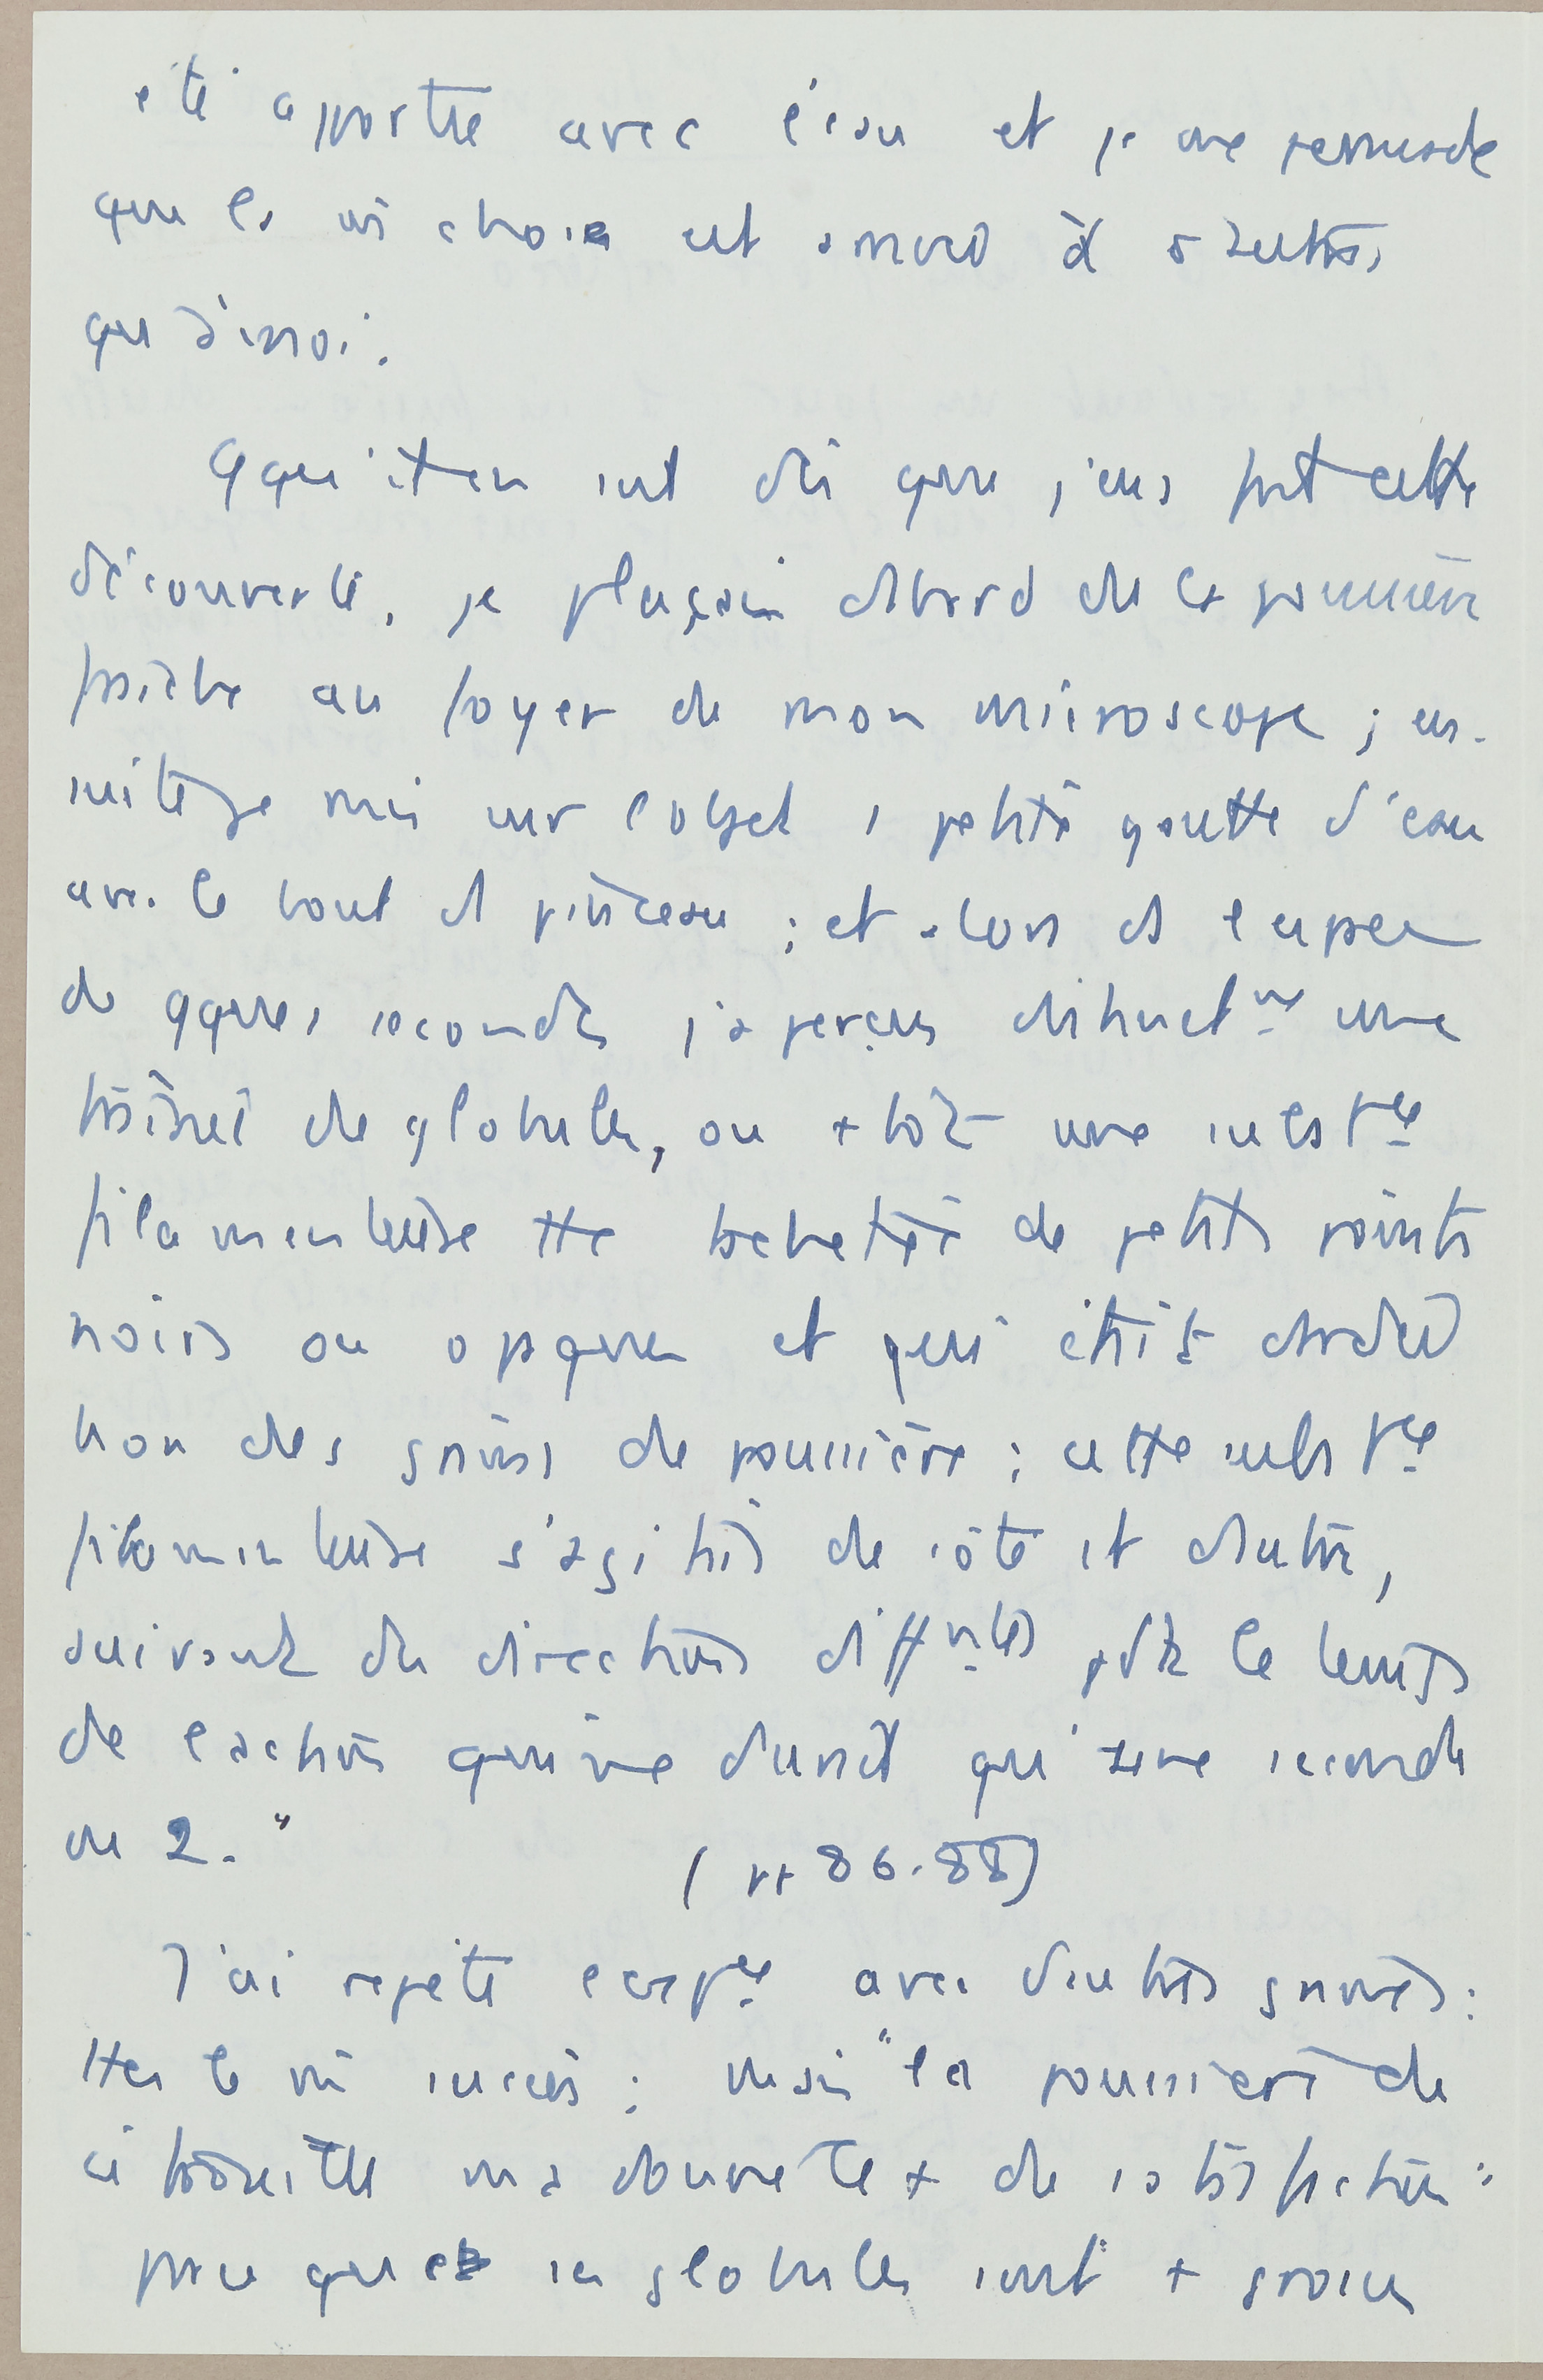 été apportée avec l'eau et je me persuade
que la mê chose est arrivée à d'autres
qu'à moi.
Qquoi'il en soit dès que j'eus fait cette
découverte, je plaçais d'abord de la poussière
au foyer de mon microscope ; en-
suite je mis sur l'objet 1 petite goutte d'eau
avec le bout d pinceau ; et alors ds l'espace
de qques secondes j'aperçus distinctmt une
traînée de globules, ou +tôt une substce
filamenteuse tte tachetée de petits points
noirs ou opaques et qui étaient d'abord
des grains de poussière ; cette substce
filamenteuse s'agitait de côté et d'autre,
suivant des directions difftes pdt le temps
de l'action qui ne durait qu'une seconde
ou 2."
(pp 86-88)
J'ai répété l'expce avec d'autres graines :
tjs le mê succès ; mais "la poussière de
citrouille m'a donné le + de satisfaction :
parce que ses globules sont + gros